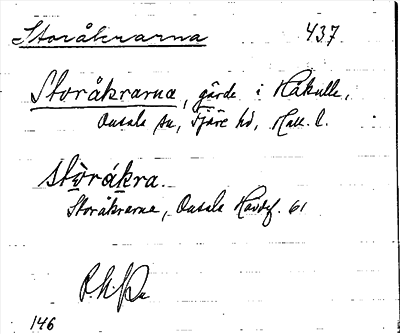 Storåkrarna 437.
Storåkrarna, gärde i Håkulle,
Onsala sn, Fjäre hd, Hall. l.
stòråkra.
Storåkrarna, Onsala Havdf. 61
146